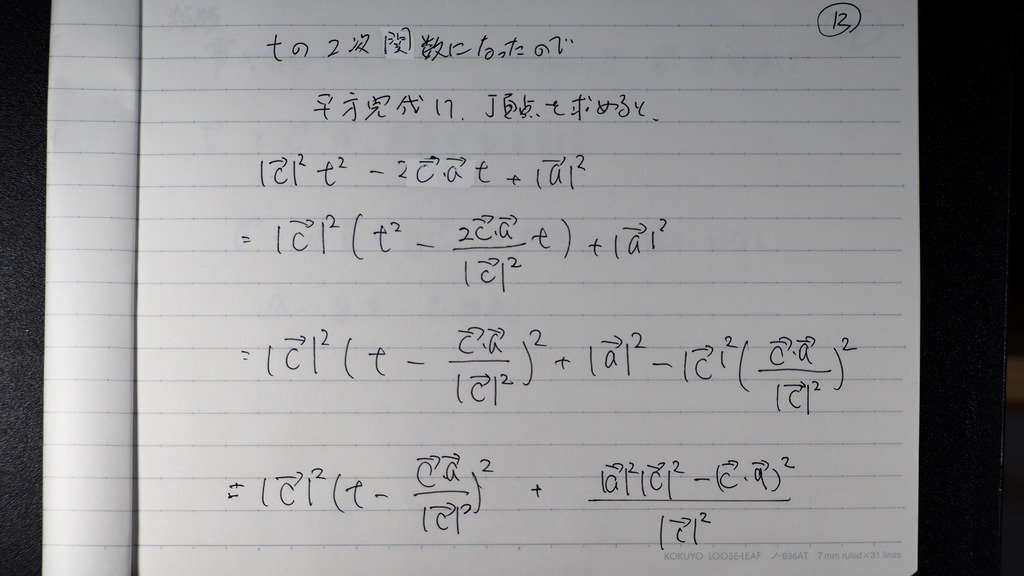 ⑫
tの2次関数になったので
平方完成し、頂点を求めると、
|c⃗|² t² − 2c⃗·a⃗ t + |a⃗|²
= |c⃗|² ( t² − 2c⃗·a⃗/|c⃗|² t ) + |a⃗|²
= |c⃗|² ( t − c⃗·a⃗/|c⃗|² )² + |a⃗|² − |c⃗|² ( c⃗·a⃗/|c⃗|² )²
= |c⃗|² ( t − c⃗·a⃗/|c⃗|² )² + |a⃗|²|c⃗|² − (c⃗·a⃗)² / |c⃗|²
KOKUYO LOOSE-LEAF ノ-836AT 7 mm ruled×31 lines